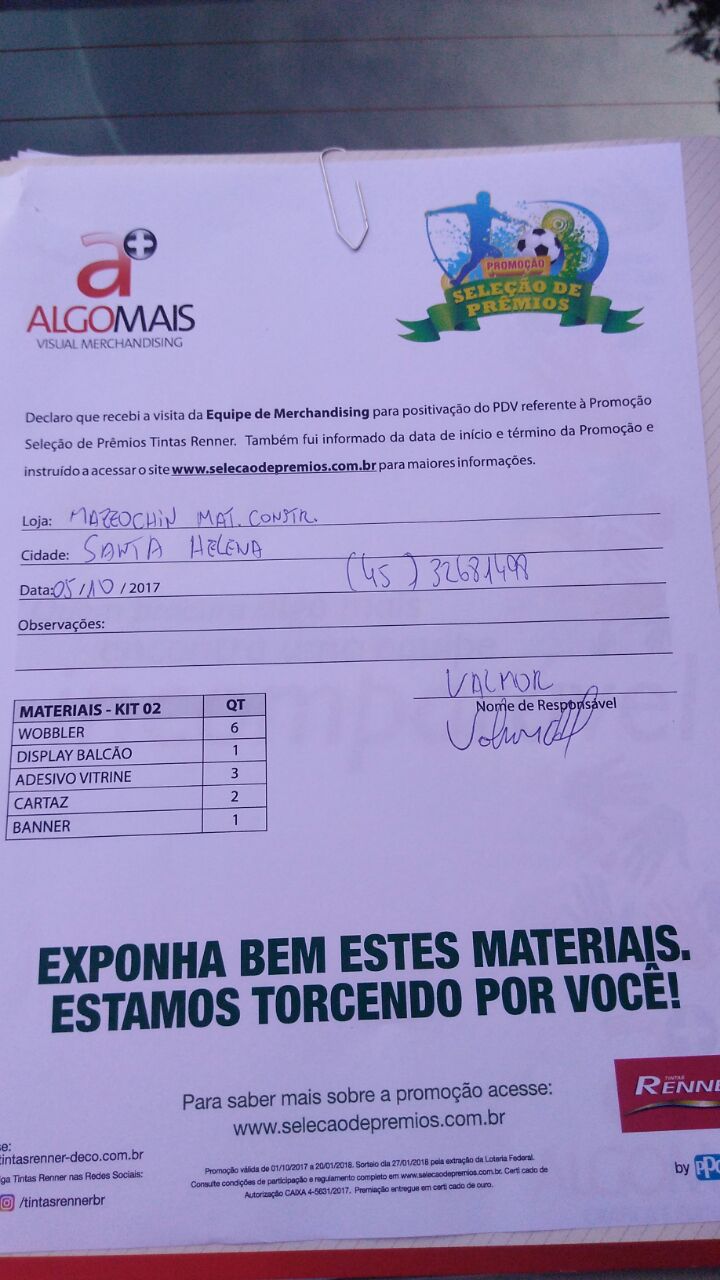 a+
ALGOMAIS
VISUAL MERCHANDISING
PROMOÇÃO
SELEÇÃO DE
PRÊMIOS
Declaro que recebi a visita da Equipe de Merchandising para positivação do PDV referente à Promoção
Seleção de Prêmios Tintas Renner. Também fui informado da data de início e término da Promoção e
instruído a acessar o site www.selecaodepremios.com.br para maiores informações.
Loja: MAZEOCHIN MAT. CONSTR.
Cidade: SANTA HELENA
Data: 05/10/2017 (45) 32681498
Observações:
VALMOR
Nome de Responsável
MATERIAIS - KIT 02 QT
WOBBLER 6
DISPLAY BALCÃO 1
ADESIVO VITRINE 3
CARTAZ 2
BANNER 1
EXPONHA BEM ESTES MATERIAIS.
ESTAMOS TORCENDO POR VOCÊ!
Para saber mais sobre a promoção acesse:
www.selecaodepremios.com.br
TINTAS
RENNE
by PPG
se:
tintasrenner-deco.com.br
iga Tintas Renner nas Redes Sociais:
/tintasrennerbr
Promoção válida de 01/10/2017 a 20/01/2018. Sorteio dia 27/01/2018 pela extração da Loteria Federal.
Consulte condições de participação e regulamento completo em www.selecaodepremios.com.br. Certi cado de
Autorização CAIXA 4-5631/2017. Premiação entregue em certi cado de ouro.